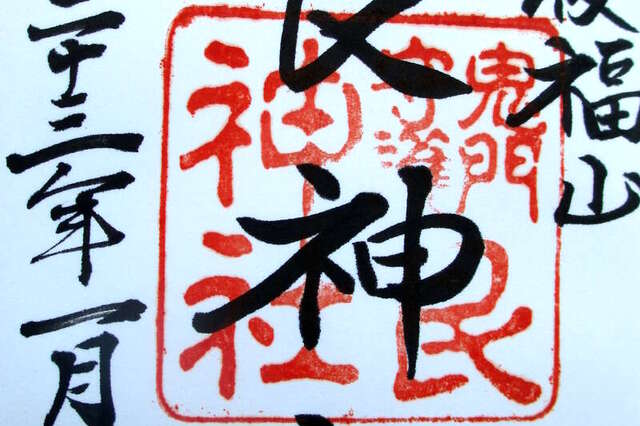 福山
艮神
鬼門
守護
艮
神社
二十三年一月